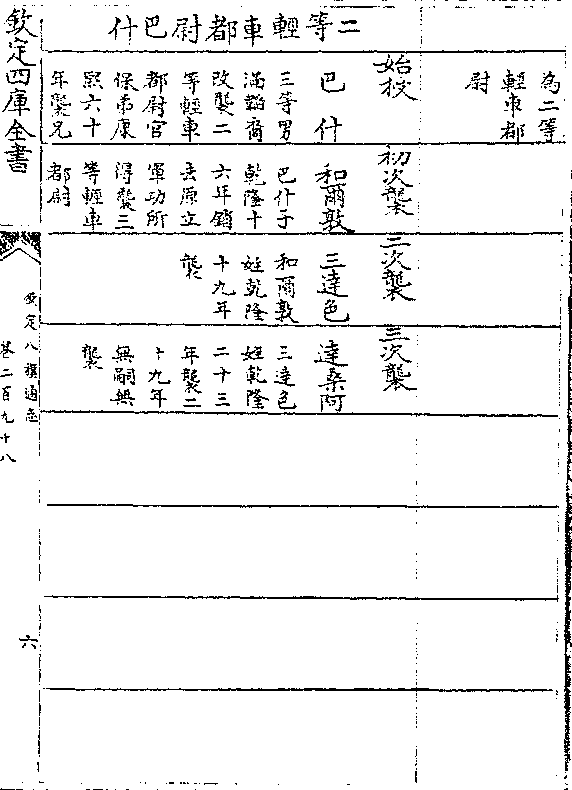 為二等
輕車都
尉
二等輕車都尉巴什
始授
巴什
三等男
滿韜裔
改襲二
等輕車
都尉官
保弟康
熙六十
年襲兄
初次襲
和爾敦
巴什子
乾隆十
六年銷
去原立
軍功所
得襲三
等輕車
都尉
二次襲
三達色
和爾敦
姪乾隆
十九年
襲
三次襲
達桑阿
三達色
姪乾隆
二十三
年襲二
十九年
無嗣無
襲
欽定四庫全書
欽定八旗通志
卷二百九十八
六